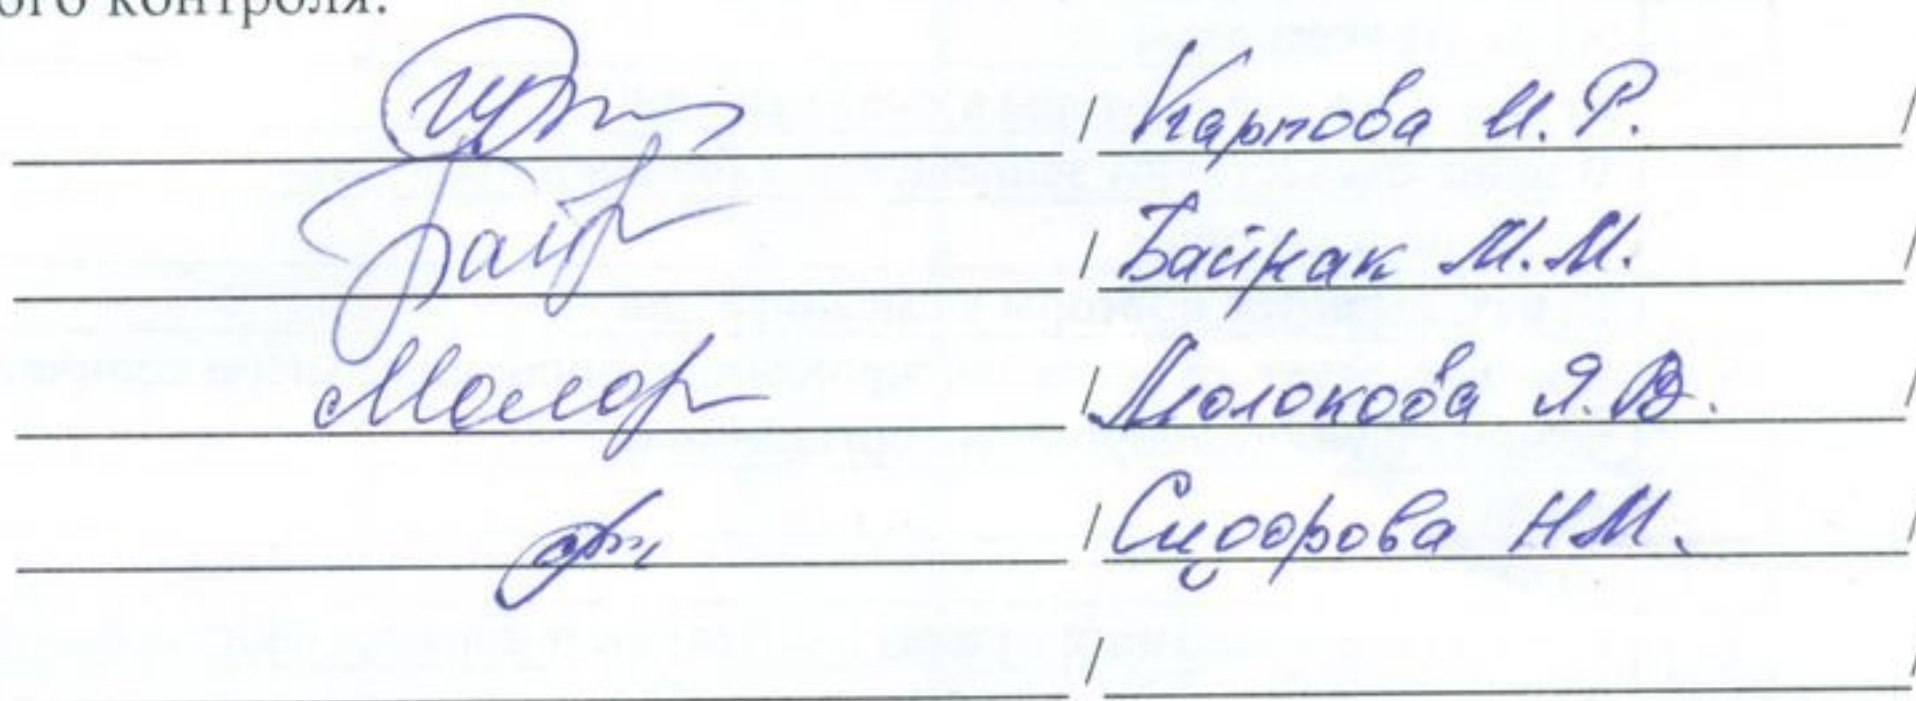 ого контроля.
/ Карпова И. Р. /
/ Байрак М.М. /
/ Молокова Я.В. /
/ Сидорова Н.М. /
/ /